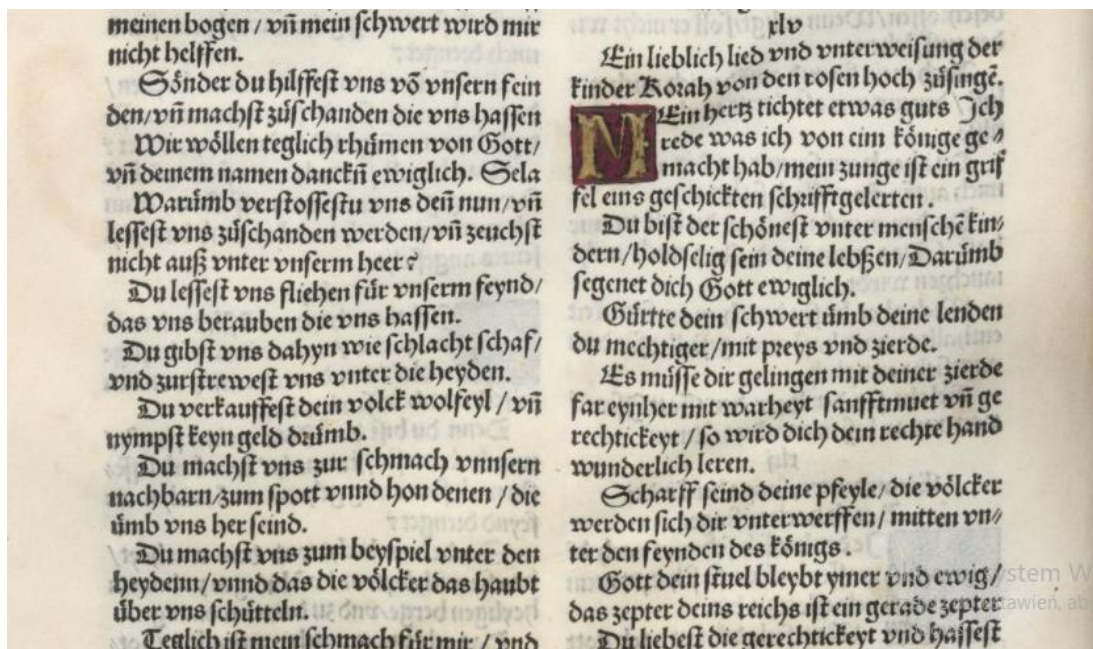 meinen bogen / vn̄ mein schwert wird mir
nicht helffen.
Sönder du hilffest vns vō vnsern fein
den/vn̄ machst zůschanden die vns hassen
Wir wöllen teglich rhůmen von Gott/
vn̄ deinem namen danckn̄ ewiglich. Sela
Warůmb verstossestu vns den̄ nun/vn̄
lessest vns zůschanden werden/vn̄ zeuchst
nicht auß vnter vnserm heer?
Du lessest vns fliehen für vnserm feynd/
das vns berauben die vns hassen.
Du gibst vns dahyn wie schlacht schaf/
vnd zurstrewest vns vnter die heyden.
Du verkauffest dein volck wolfeyl / vn̄
nympst keyn geld drůmb.
Du machst vns zur schmach vnnsern
nachbarn/zum spott vnnd hon denen / die
ůmb vns her seind.
Du machst vns zum beyspiel vnter den
heydenn/vnnd das die völcker das haubt
über vns schütteln.
Teglich ist mein schmach für mir / vnd
xlv
Ein lieblich lied vnd vnterweisung der
kinder Korah von den rosen hoch zůsingē.
MEin hertz tichtet etwas guts Ich
rede was ich von eim könige ge⸗
macht hab/mein zunge ist ein grif
fel eins geschickten schrifftgelerten.
Du bist der schönest vnter menschē kin⸗
dern/holdselig sein deine lebßen/Darůmb
segenet dich Gott ewiglich.
Gürtte dein schwert ůmb deine lenden
du mechtiger/mit preys vnd zierde.
Es müsse dir gelingen mit deiner zierde
far eynher mit warheyt sanfftmuet vn̄ ge
rechtickeyt / so wird dich dein rechte hand
wunderlich leren.
Scharff seind deine pfeyle/ die völcker
werden sich dir vnterwerffen/ mitten vn⸗
ter den feynden des königs.
Gott dein stuel bleybt ymer vnd ewig/
das zepter deins reichs ist ein gerade zepter
Du liebest die gerechtickeyt vnd hassest